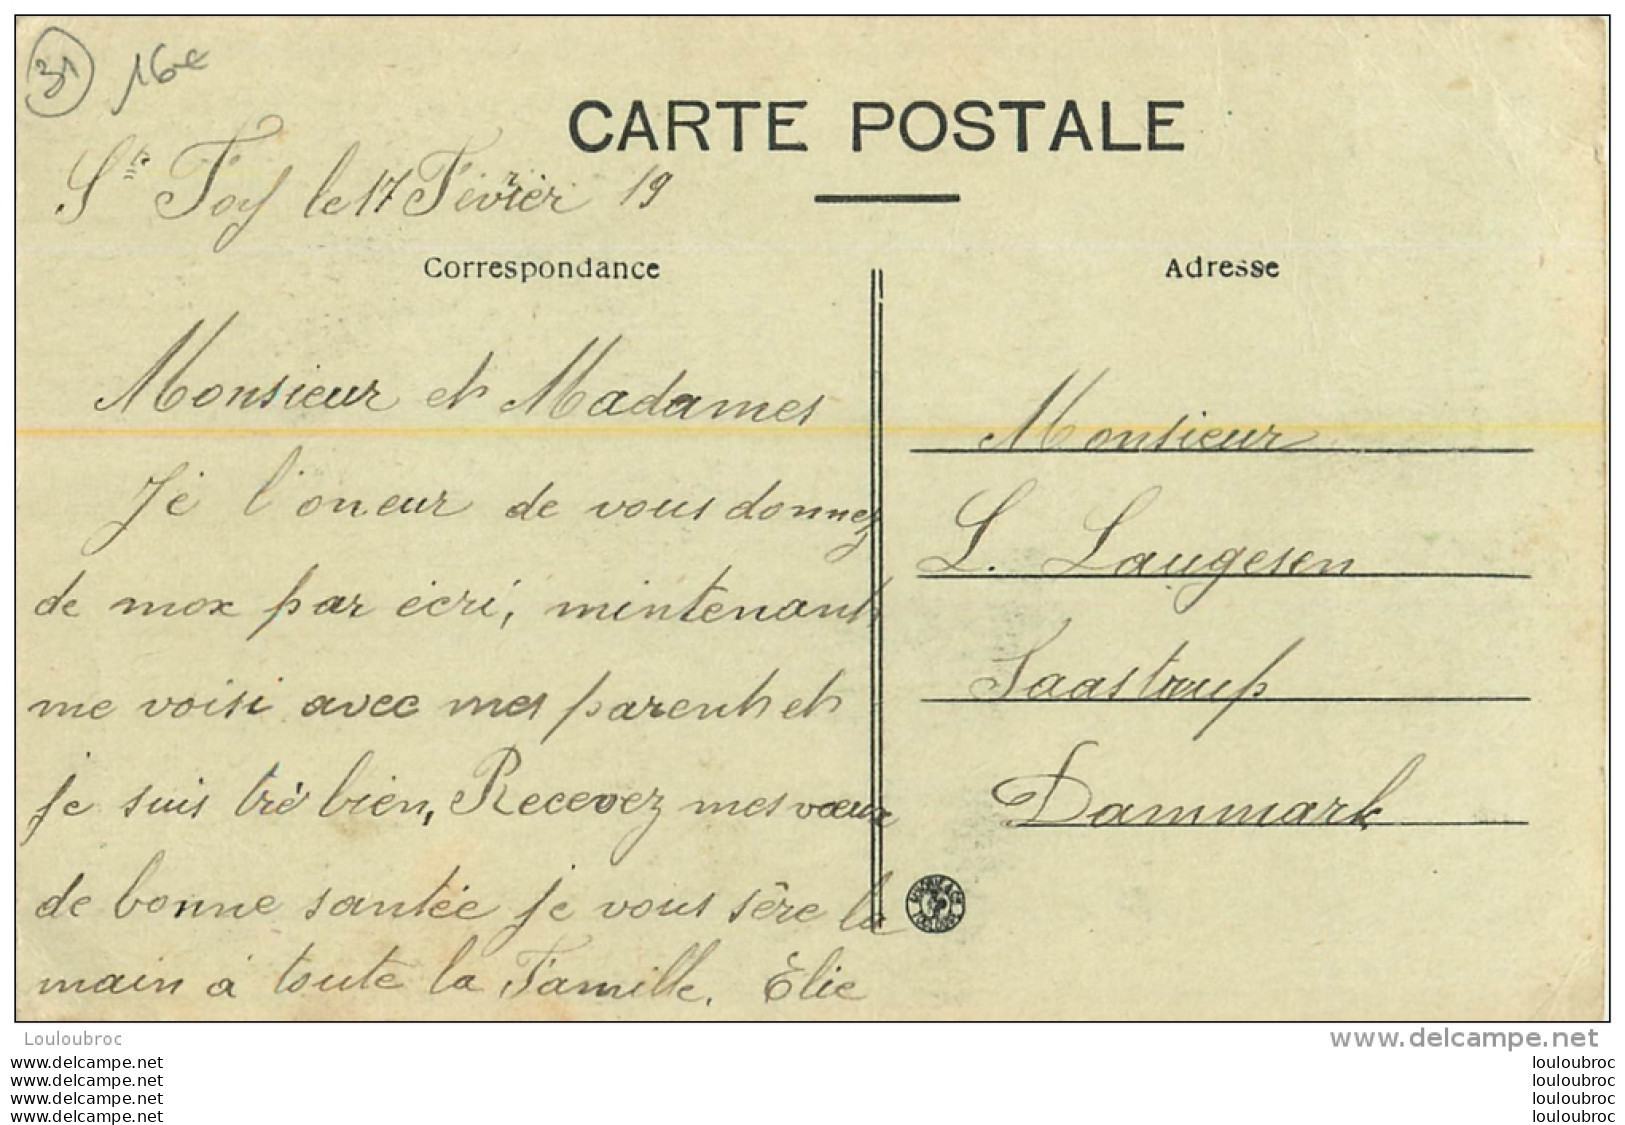 31
16€
CARTE POSTALE
Ste Foy le 17 Février 19
Correspondance
Monsieur et Madames
Jé l'oneur de vous donnez
de mox par écri, mintenant
me voisi avec mes parent et
je suis tré bien, Recevez mes vœux
de bonne santée je vous sêre la
main à toute la Famille. Èlie
Adresse
Monsieur
L. Laugesen
Saastrup
Dammark
TOULOUSE
Louloubroc
www.delcampe.net
www.delcampe.net
www.delcampe.net
www.delcampe.net
www.delcampe.net
louloubroc
louloubroc
louloubroc
louloubroc